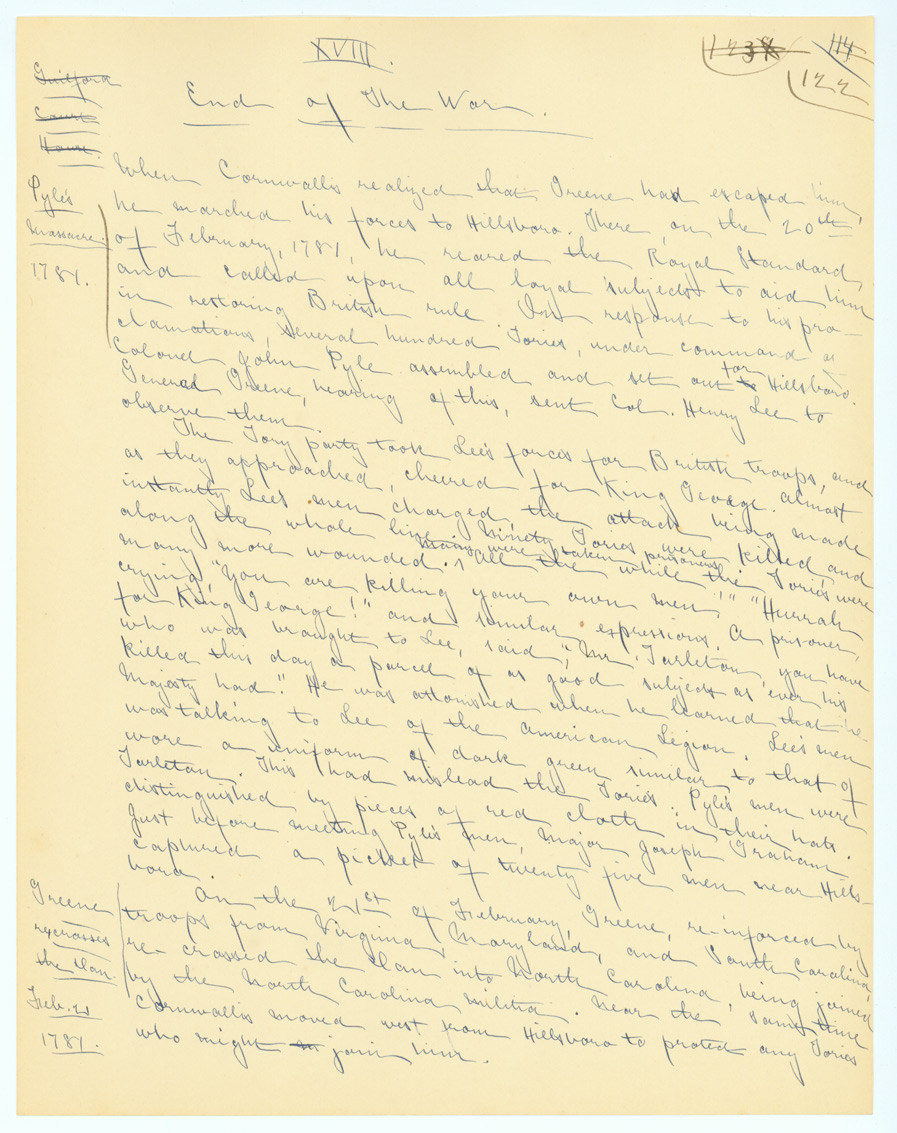 XVIII.
123
114
122
End of The War.
Guilford
Court
House.
Pyle's
Massacre.
1781.
When Cornwallis realized that Greene had escaped him,
he marched his forces to Hillsboro. There, on the 20th
of February, 1781, he reared the Royal Standard,
and called upon all loyal subjects to aid him
in restoring British rule. In response to his pro-
clamations, several hundred Tories, under command of
Colonel John Pyle assembled and set out to for Hillsboro.
General Greene, hearing of this, sent Col. Henry Lee to
observe them.
The Tory party took Lee's forces for British troops, and
as they approached, cheered for King George. Almost
instantly Lee's men charged, the attack being made
along the whole line. Ninety Tories were killed and
many were taken prisoners
many more wounded. All the while the Tories were
crying, "You are killing your own men!" "Hurrah
for King George!" and similar expressions. A prisoner,
who was brought to Lee, said, "Mr. Tarleton, you have
killed this day a parcel of as good subjects as ever his
Majesty had." He was astonished when he learned that he
was talking to Lee of the American Legion. Lee's men
wore a uniform of dark green similar to that of
Tarleton. This had mislead the Tories. Pyle's men were
distinguished by pieces of red cloth in their hats.
Just before meeting Pyle's men, Major Joseph Graham
captured a picket of twenty five men near Hills-
boro.
Greene
recrosses
the Dan.
Feb. 21
1781.
On the 21st of February, Greene, re-inforced by
troops from Virginia, Maryland, and South Carolina,
re-crossed the Dan into North Carolina, being joined
by the North Carolina militia. Near the same time
Cornwallis moved west from Hillsboro to protect any Tories
who might join him.